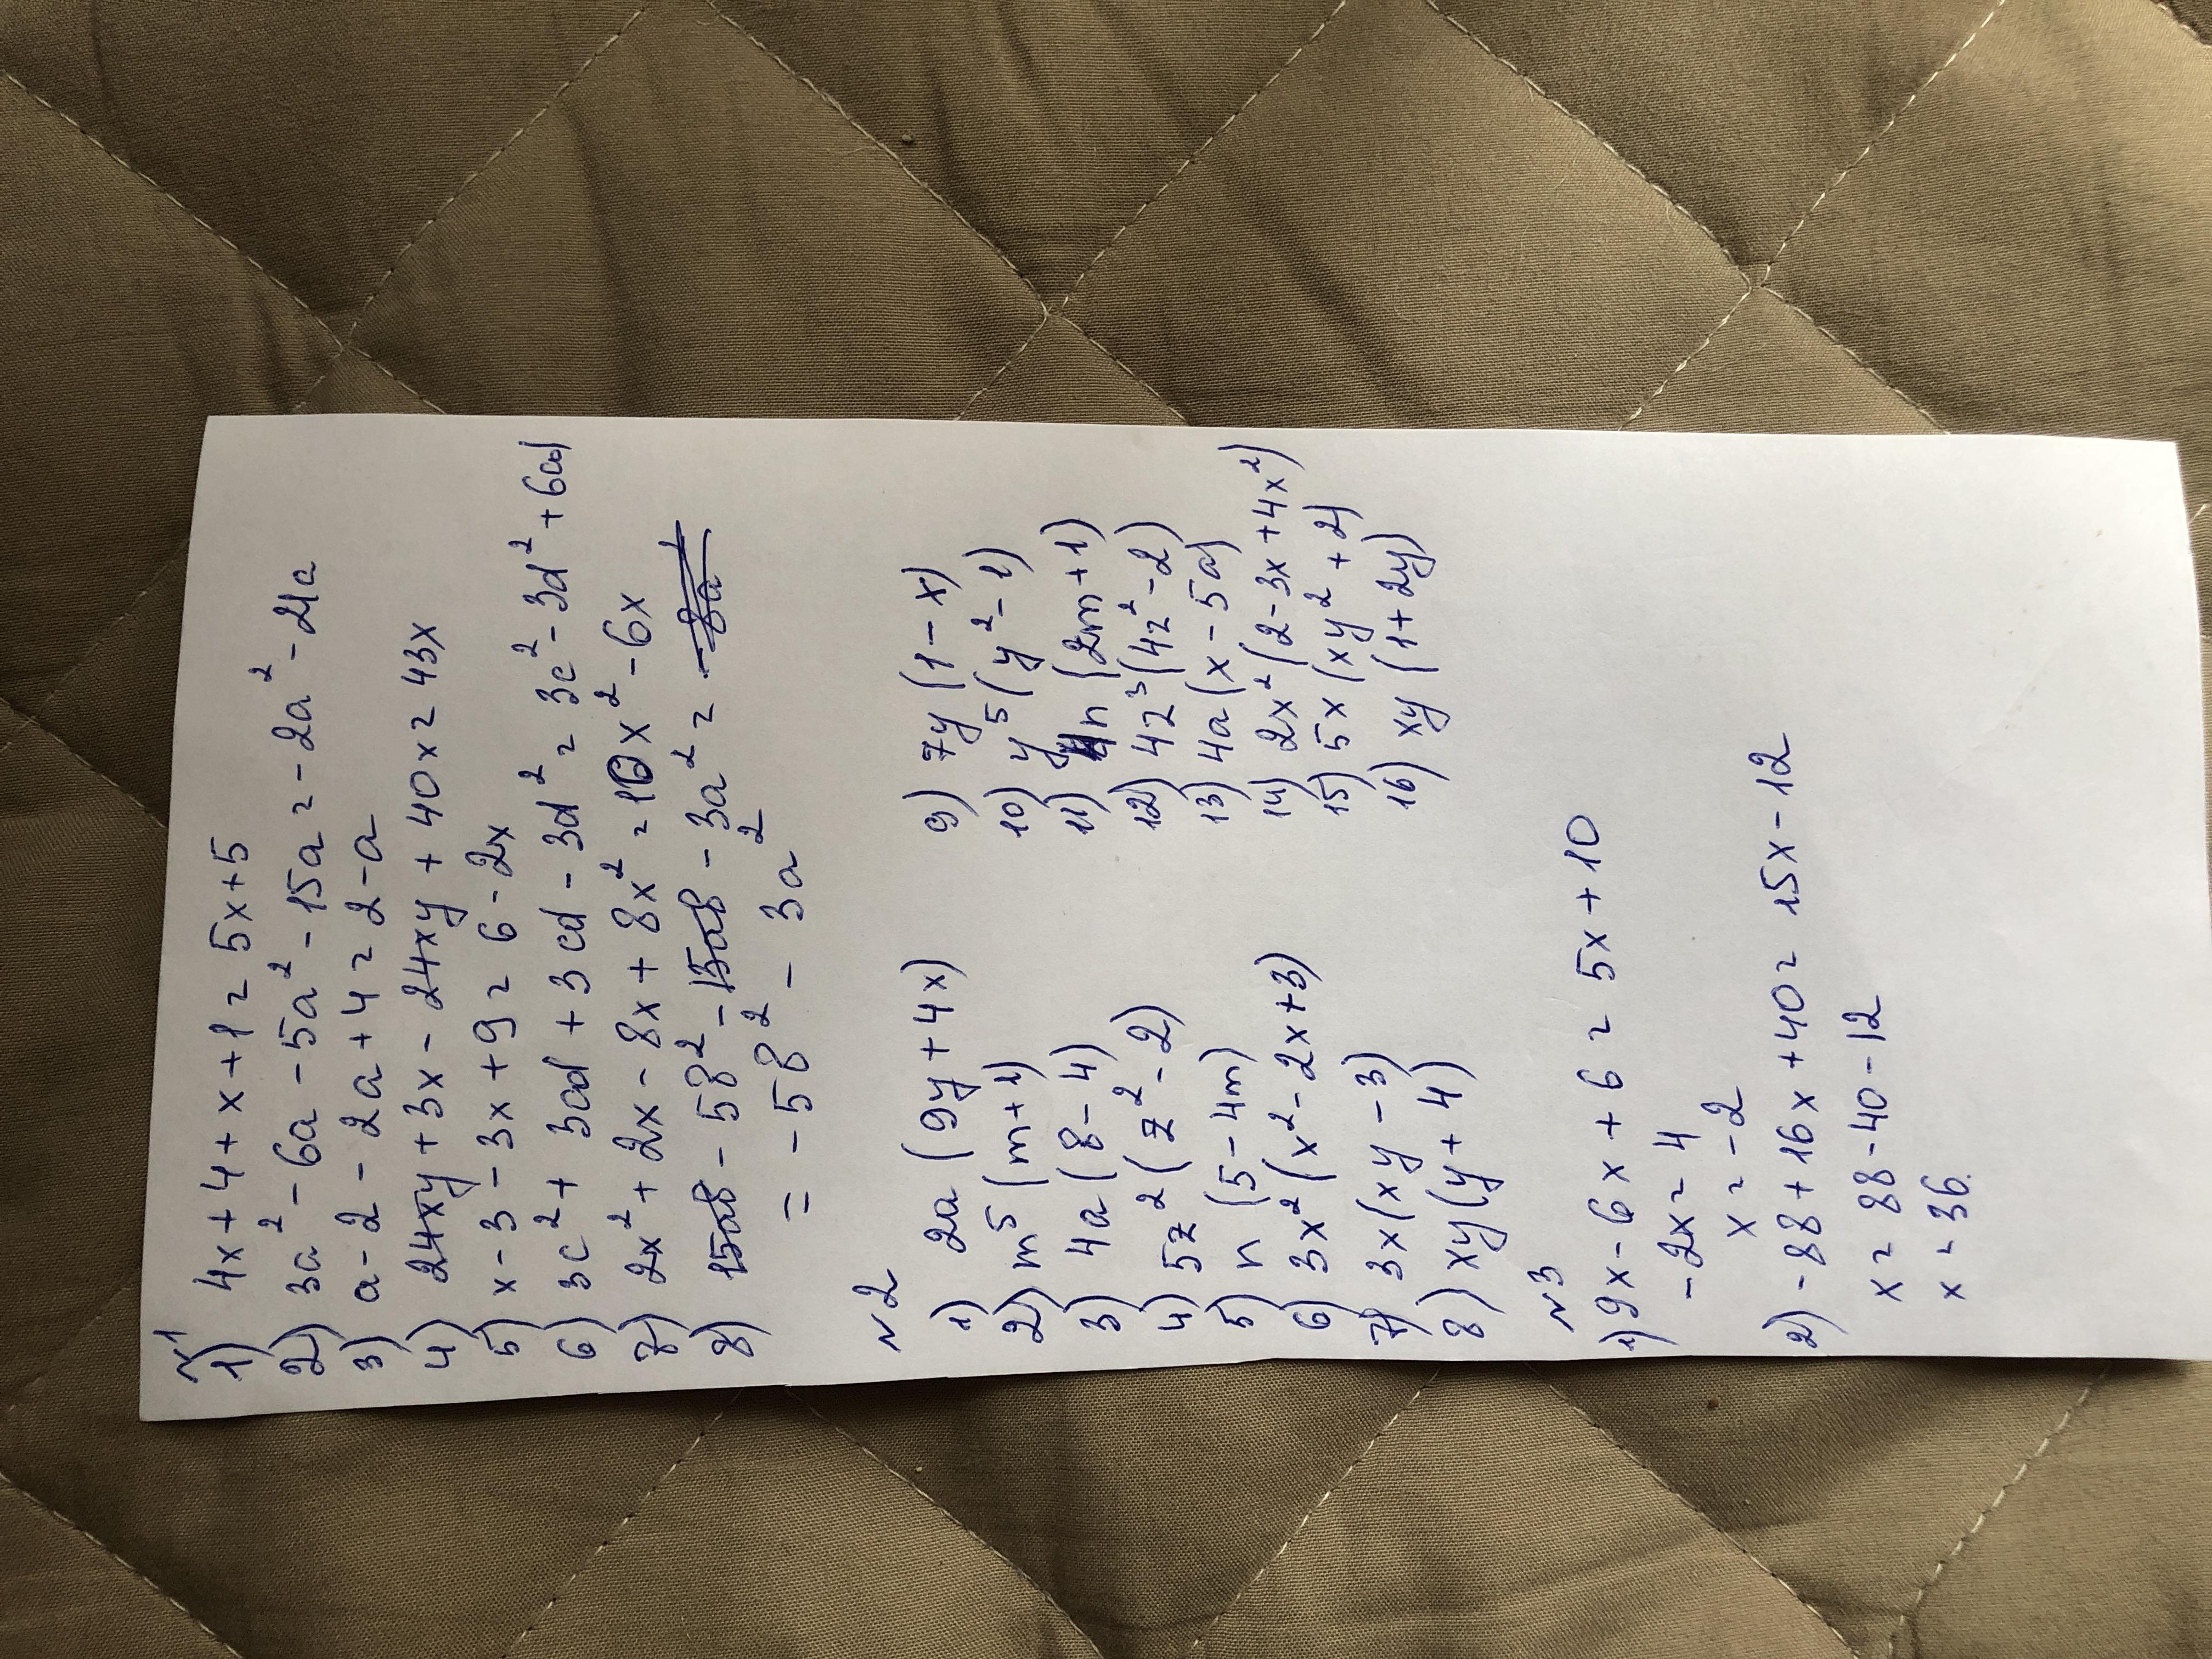 №1
1) 4x + 4 + x + 1 = 5x + 5
2) 3a² - 6a - 5a² - 15a = - 2a² - 21a
3) a - 2 - 2a + 4 = 2 - a
4) 24xy + 3x - 24xy + 40x = 43x
5) x - 3 - 3x + 9 = 6 - 2x
6) 3c² + 3cd + 3cd - 3d² = 3c² - 3d² + 6cd
7) 2x² + 2x - 8x + 8x² = 10x² - 6x
8) 15ab - 5b² - 15ab - 3a² =
= - 5b² - 3a²
№2
1) 2a (9y + 4x)
2) m⁵ (m + 1)
3) 4a (b - 4)
4) 5z² (z² - 2)
5) n (5 - 4m)
6) 3x² (x² - 2x + 3)
7) 3x (xy - 3)
8) xy (y + 4)
9) 7y (1 - x)
10) y⁵ (y² - 1)
11) 4n (2m + 1)
12) 4z³ (4z² - 2)
13) 4a (x - 5a)
14) 2x² (2 - 3x + 4x²)
15) 5x (xy² + 2)
16) xy (1 + 2y)
№3
1) 9x - 6x + 6 = 5x + 10
-2x = 4
x = -2
2) - 88 + 16x + 40 = 15x - 12
x = 88 - 40 - 12
x = 36.